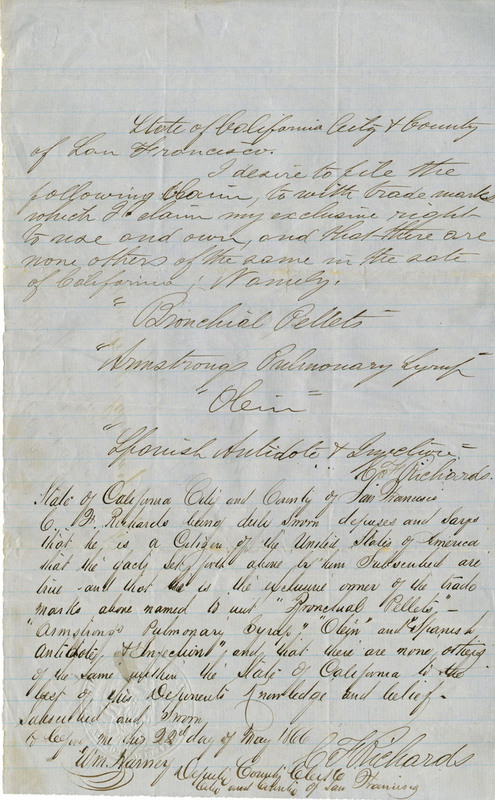 State of California City & County
of San Francisco.
I desire to file the
following Claim, to with trade marks
which I claim my exclusive right
to use and own, and that there are
none others of the same in the sate
of California; Namely.
"Bronchial Pellets"
"Armstrongs Pulmonary Syrup"
"Olein"
"Spanish Antidote & Injection"
C. F. Richards.
State of California City and County of San Francisco
C. F. Richards being duly sworn deposes and says
that he is a Citizen of the United States of America
that the facts set forth above by him Subscribed are
true and that he is the exclusive owner of the trade
marks above named to wit "Bronchial Pellets"-
"Armstrongs Pulmonary Syrup", "Olein" and "Spanish
Antidote & Injection", and that there are none others
of the same within the State of California to the
best of this Deponents knowledge and belief-
Subscribed and Sworn
to before me this 22nd day of May 1866
C. F. Richards
Wm Harney
Deputy County Clerk
City and County of San Francisco